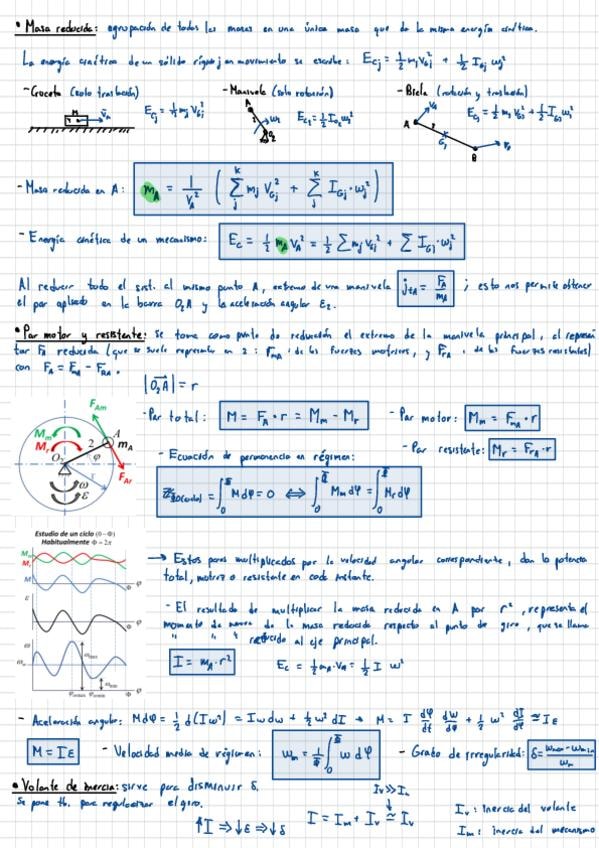 • Masa reducida: agrupación de todas las masas en una única masa que da la misma energía cinética.
La energía cinética de un sólido rígido j en movimiento se escribe: E_cj = 1/2 m_j V_Gj² + 1/2 I_Gj ω_j²
- Corredera (solo traslación) - Manivela (solo rotación) - Biela (rotación y traslación)
- Masa reducida en A: m_A = 1/V_A² ( Σ_j^k m_j V_Gj² + Σ_j^k I_Gj · ω_j² )
- Energía cinética de un mecanismo: E_c = 1/2 m_A V_A² = 1/2 Σ m_j V_Gj² + Σ I_Gj · ω_j²
Al reducir todo el sist. al mismo punto A, extremo de una manivela j_tA = F_A/m_A ; esto nos permite obtener
el par aplicado en la barra O₂A y la aceleración angular ε₂.
• Par motor y resistente: se toma como punto de reducción el extremo de la manivela principal, al represen
tar F_A reducida (que se suele representar en 2: F_mA, de las fuerzas motrices, y F_rA, de las fuerzas resistentes)
con F_A = F_mA - F_RA.
|O₂A| = r
- Par total: M = F_A · r = M_m - M_r - Par motor: M_m = F_mA · r
- Par resistente: M_r = F_rA · r
F_Am
M_m
M_r
O₂
2
A
m_A
φ
r
F_Ar
ω
ε
- Ecuación de permanencia en régimen:
= ∫₀^Φ M dφ = 0 ⟺ ∫₀^Φ M_m dφ = ∫₀^Φ M_r dφ
Estudio de un ciclo (0 – Φ)
Habitualmente Φ = 2π
M_m
M_r
M
Φ φ
ε
φ
ω
ω_m
ω_max
ω_min
φ_ωmax φ_ωmin Φ φ
→ Estos pares multiplicados por la velocidad angular correspondiente, dan la potencia
total, motriz o resistente en cada instante.
- El resultado de multiplicar la masa reducida en A por r², representa el
momento de inercia de la masa reducida respecto al punto de giro, que se llama
" " " reducido al eje principal.
I = m_A · r² E_c = 1/2 m_A · V_A = 1/2 I ω²
- Aceleración angular: M dφ = 1/2 d(Iω²) = Iω dω + 1/2 ω² dI → M = I dφ/dt dω/dφ + 1/2 ω² dI/dφ ≅ I ε
M = I ε - Velocidad media de régimen: ω_m = 1/Φ ∫₀^Φ ω dφ - Grado de irregularidad: δ = (ω_max - ω_min)/ω_m
• Volante de inercia: sirve para disminuir δ.
Se pone tb. para regularizar el giro.
↑I ⇒ ↓ε ⇒ ↓δ
I_v ≫ I_m
I = I_m + I_v ≅ I_v
I_v: inercia del volante
I_m: inercia del mecanismo